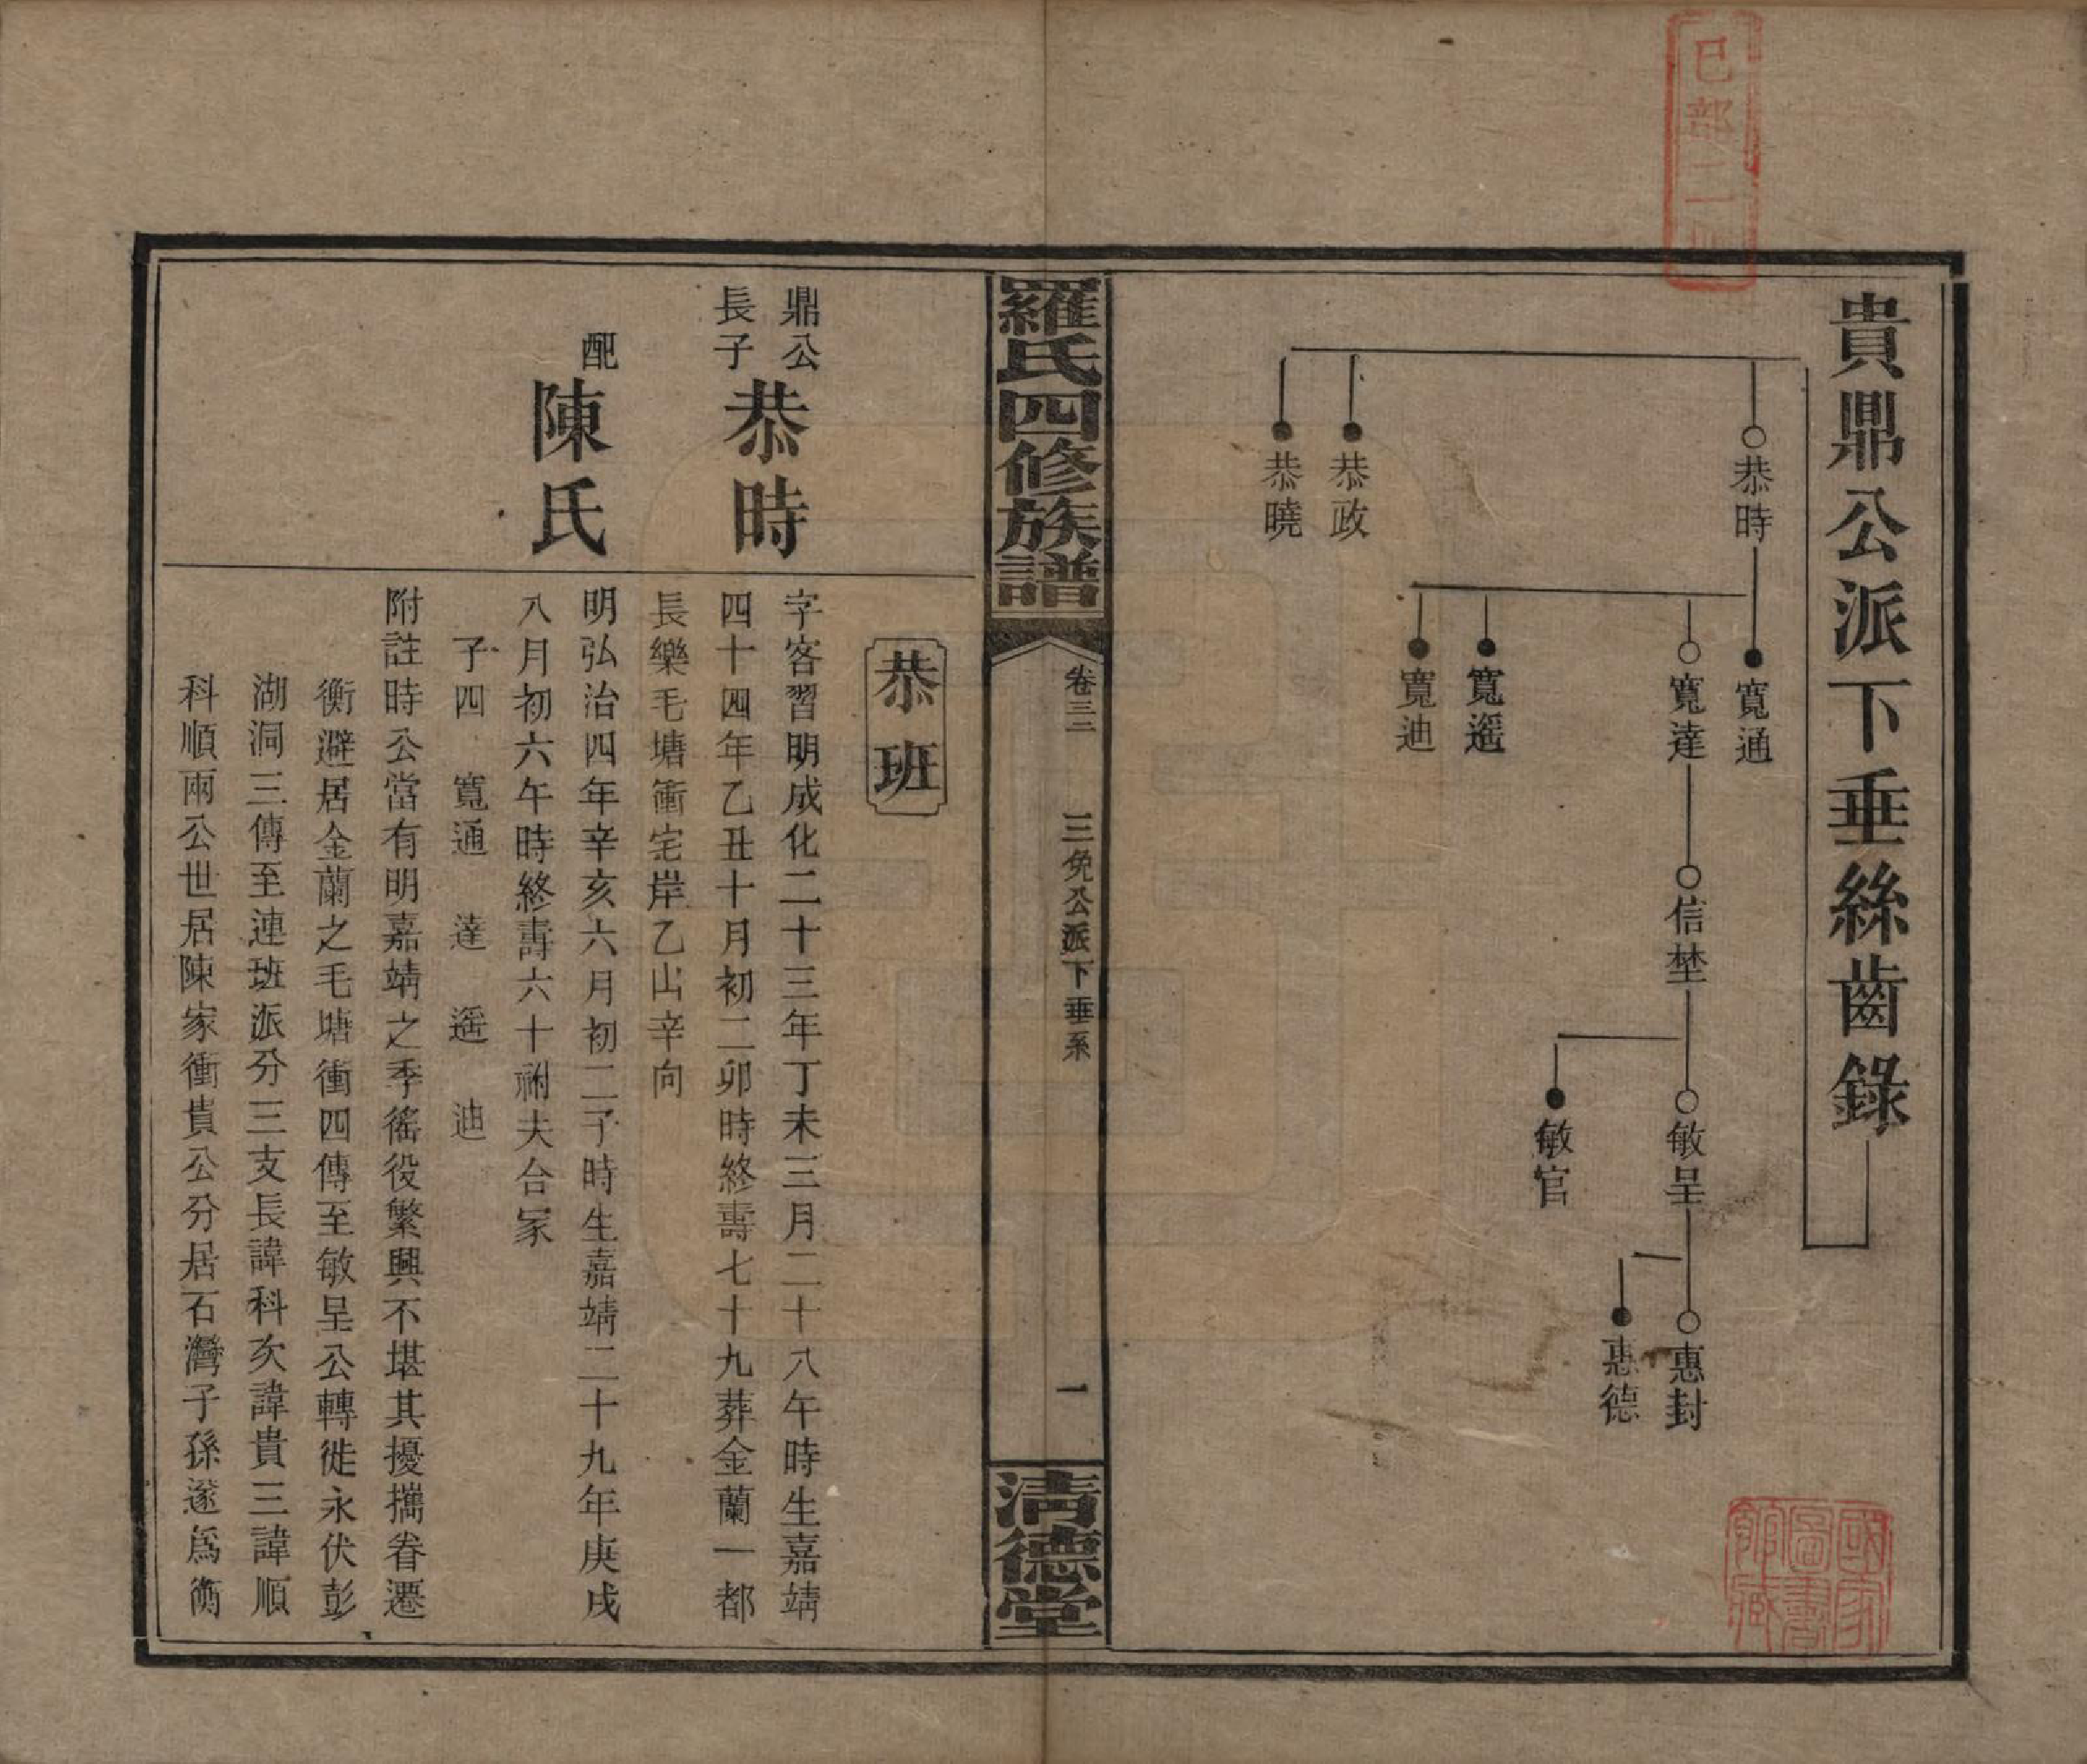 貴鼎公派下垂絲齒錄
恭時
恭政
恭曉
寬通
寬達
寬遥
寬迪
信埜
敏呈
敏官
惠封
惠德
羅氏四修族譜
卷三二
三免公派下垂系
一
清德堂
恭班
鼎公長子
恭時
字客習明成化二十三年丁未三月二十八午時生嘉靖
四十四年乙丑十月初二卯時終壽七十九葬金蘭一都
長樂毛塘衝宅岸乙山辛向
配
陳氏
明弘治四年辛亥六月初二子時生嘉靖二十九年庚戌
八月初六午時終壽六十祔夫合冢
子四 寬通 達 遥 迪
附註時公當有明嘉靖之季徭役繁興不堪其擾攜眷遷
衡避居金蘭之毛塘衝四傳至敏呈公轉徙永伏彭
湖洞三傳至連班派分三支長諱科次諱貴三諱順
科順兩公世居陳家衝貴公分居石灣子孫遂爲衡
巳部二
國家圖書館藏